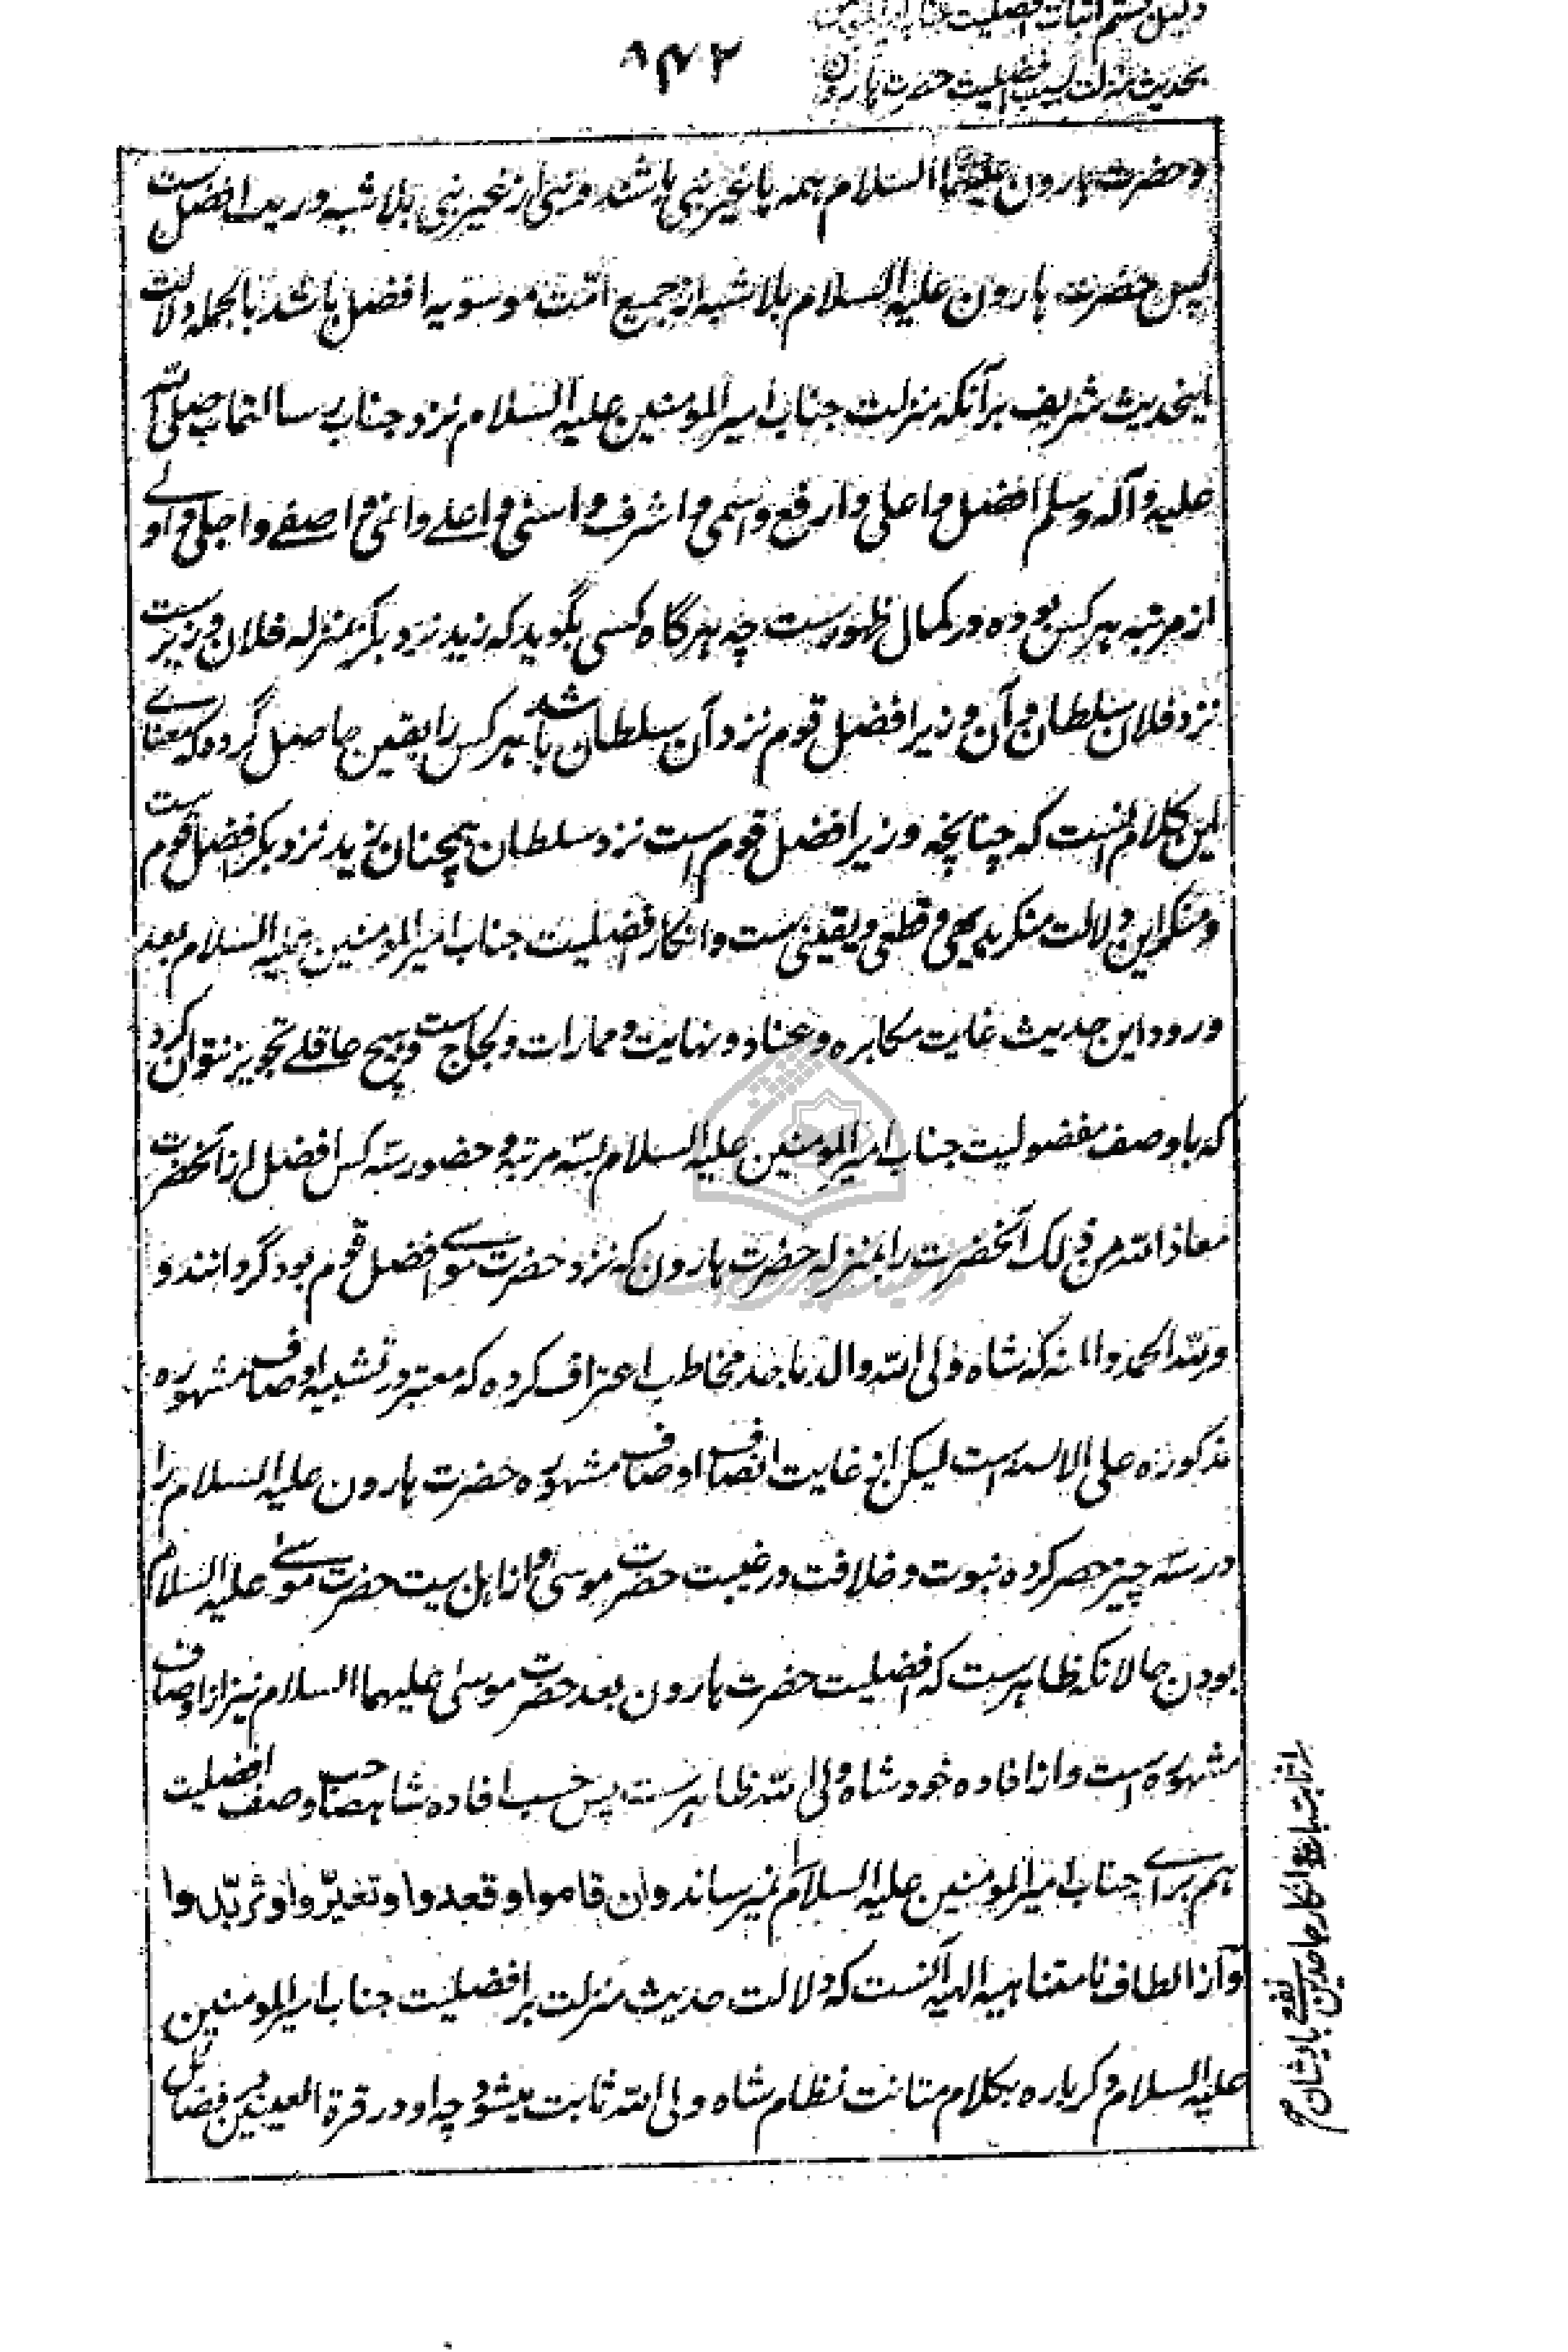 دلیل هشتم اثبات افضلیت جناب امیرالمومنین
بحدیث منزلت بسبب افضلیت حضرت هارون
۸۴۲
و حضرت هارون علیهما السلام همه با غیر نبی باشند و نبی از غیر نبی بلا شبه و ریب افضل ست
پس حضرت هارون علیه السلام بلا شبه از جمیع امت موسویه افضل باشد بالجمله دلالت
اینحدیث شریف بر آنکه منزلت جناب امیر المومنین علیه السلام نزد جناب رسالتماب صلی الله
علیه و آله و سلم افضل و اعلی و ارفع و اسمی و اشرف و اسنی و اعلے و انمی و اصفے و اجلی و اولے
از مرتبه هر کس بوده در کمال ظهورست چه هر گاه کسی بگوید که زید نزد بکر بمنزله فلان وزیرست
نزد فلان سلطان و آن وزیر افضل قوم نزد آن سلطان باشد هر کس را یقین حاصل گردد که معناے
این کلام اینست که چنانچه وزیر افضل قوم است نزد سلطان همچنان زید نزد بکر افضل قوم ست
و منکر این دلالت منکر بدیهی و قطعی و یقینی ست و انکار افضلیت جناب امیر المومنین علیه السلام بعد
ورود این حدیث غایت مکابره و عناد و نهایت و ممارات و لجاج ست و هیچ عاقلے تجویز نتوان کرد
که با وصف مفضولیت جناب امیر المومنین علیه السلام بسه مرتبه و حضور سه کس افضل از آنحضرت
معاذ الله من ذلک آنحضرت را بمنزله حضرت هارون که نزد حضرت موسے افضل قوم بود گردانند و
و لله الحمد و المنه که شاه ولی الله والد ماجد مخاطب اعتراف کرده که معتبر در تشبیه اوصاف مشهوره
مذکوره علی الالسنه است لیکن از غایت انصاف اوصاف مشهوره حضرت هارون علیه السلام را
در سه چیز حصر کرده نبوت و خلافت در غیبت حضرت موسی و از اهل بیت حضرت موسے علیه السلام
بودن حالانکه ظاهرست که افضلیت حضرت هارون بعد حضرت موسی علیهما السلام نیز از اوصاف
مشهوره است و از افاده خود شاه ولی الله ظاهرست پس حسب افاده شاهصاحب وصف افضلیت
هم براے جناب امیر المومنین علیه السلام میرساند و ان قاموا و قعدوا و تغیروا و تربلوا
و از الطاف نامتناهیه الهیه آنست که دلالت حدیث منزلت بر افضلیت جناب امیر المومنین
علیه السلام دگر باره بکلام متانت نظام شاه ولی الله ثابت میشود چه او در قرة العینین فضائل